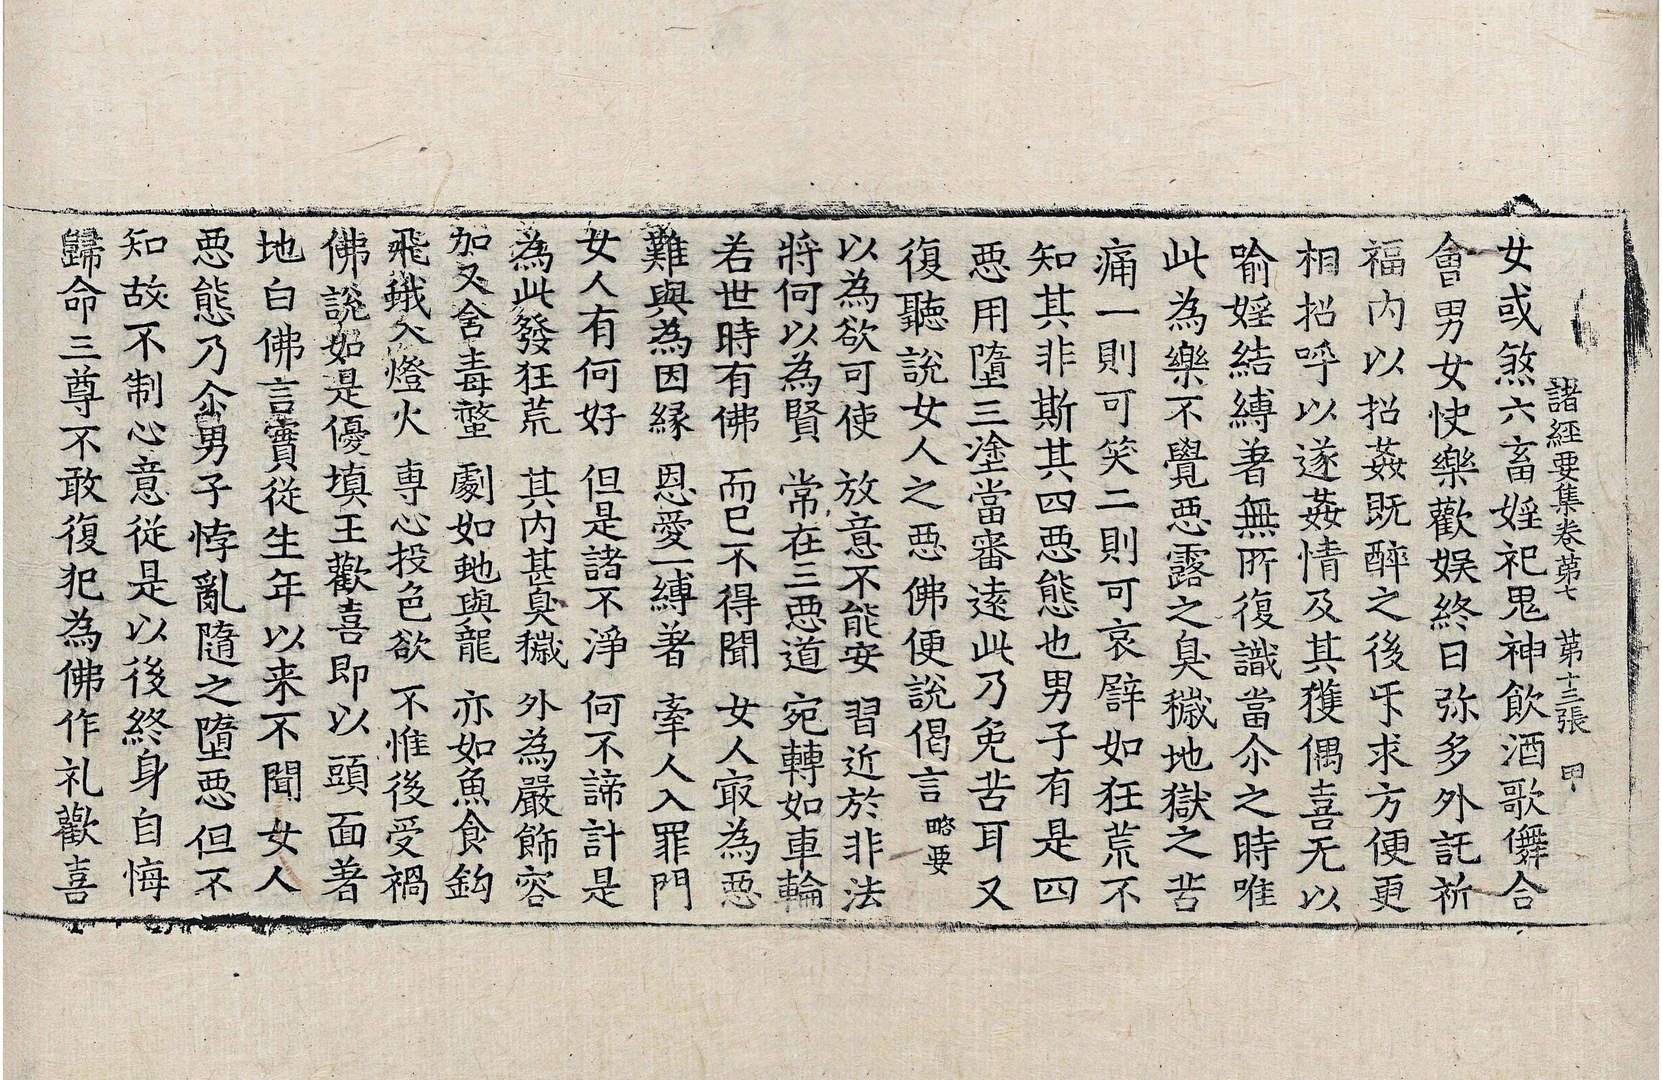 諸經要集卷第七 第十三張 甲
女或煞六畜婬祀鬼神飲酒歌儛合
會男女快樂歡娛終日弥多外託祈
福內以招姦既醉之後㸦求方便更
相招呼以遂姦情及其獲偶喜无以
喻婬結縛著無所復識當尒之時唯
此為樂不覺惡露之臭穢地獄之苦
痛一則可笑二則可哀辟如狂荒不
知其非斯其四惡態也男子有是四
惡用墮三塗當審遠此乃免苦耳又
復聽說女人之惡佛便說偈言 略要
以為欲可使 放意不能安 習近於非法
將何以為賢 常在三惡道 宛轉如車輪
若世時有佛 而已不得聞 女人㝡為惡
難與為因緣 恩愛一縛著 牽人入罪門
女人有何好 但是諸不淨 何不諦計是
為此發狂荒 其內甚臭穢 外為嚴飾容
加又舍毒螫 劇如虵與龍 亦如魚食鈎
飛蛾入燈火 專心投色欲 不惟後受禍
佛說如是優填王歡喜即以頭面著
地白佛言實從生年以来不聞女人
惡態乃尒男子悖亂隨之墮惡但不
知故不制心意從是以後終身自悔
歸命三尊不敢復犯為佛作礼歡喜